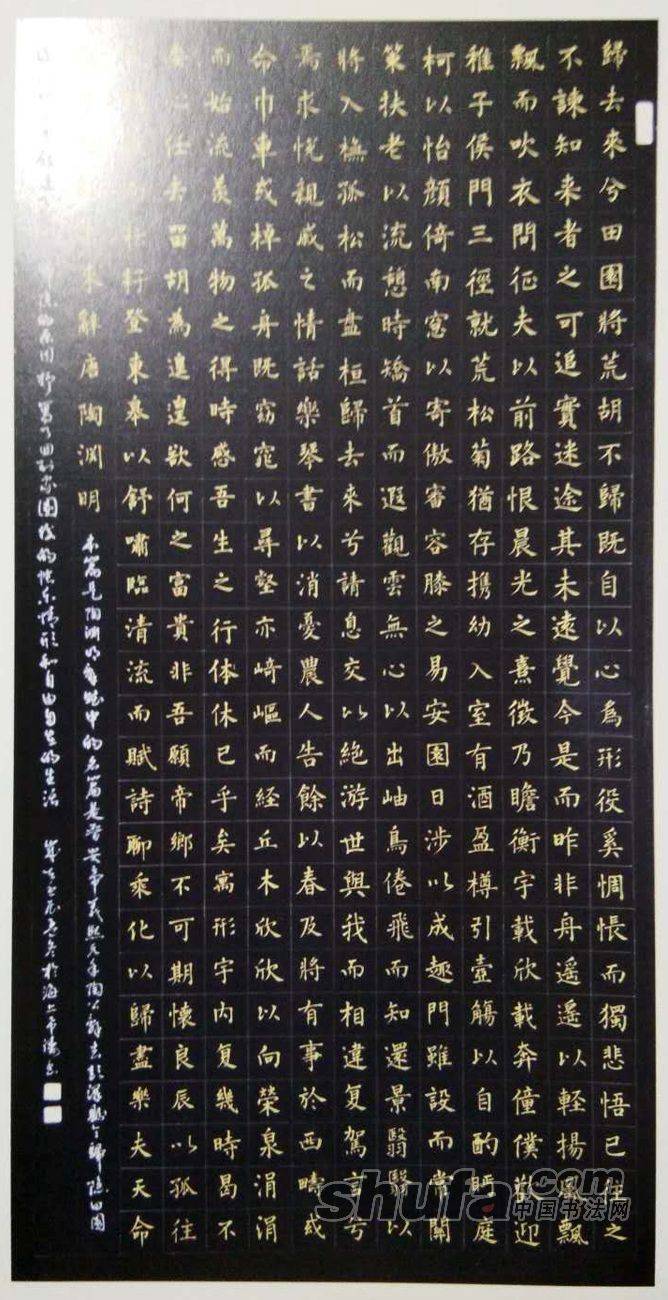 歸去來兮田園將荒胡不歸既自以心爲形役奚惆悵而獨悲悟已往之
不諫知来者之可追實迷途其未遠覺今是而昨非舟遥遥以輕揚風飄
飄而吹衣問征夫以前路恨晨光之熹微乃瞻衡宇載欣載奔僮僕歡迎
稚子侯門三徑就荒松菊猶存携幼入室有酒盈樽引壺觴以自酌眄庭
柯以怡顔倚南窓以寄傲審容膝之易安園日涉以成趣門雖設而常關
策扶老以流憩時矯首而遐觀雲無心以出岫鳥倦飛而知還景翳翳以
將入撫孤松而盘桓歸去来兮請息交以絶游世與我而相違复駕言兮
焉求悅親戚之情話樂琴書以消憂農人告餘以春及將有事於西疇或
命巾車或棹孤舟既窈窕以尋壑亦崎嶇而経丘木欣欣以向榮泉涓涓
而始流羨萬物之得時感吾生之行体休已乎矣寓形宇内复幾時曷不
委心任去留胡為遑遑欲何之富貴非吾願帝鄉不可期懷良辰以孤往
登東皋以舒嘯臨清流而賦詩聊乘化以歸盡樂夫天命
来辭唐陶渊明
本篇是陶渊明辭賦中的名篇是晉安帝義熙元年陶公辭去彭澤縣令歸隐田園
田野寫了回到家園后的快乐情形和自由自在的生活
shufa.com
中国书法网